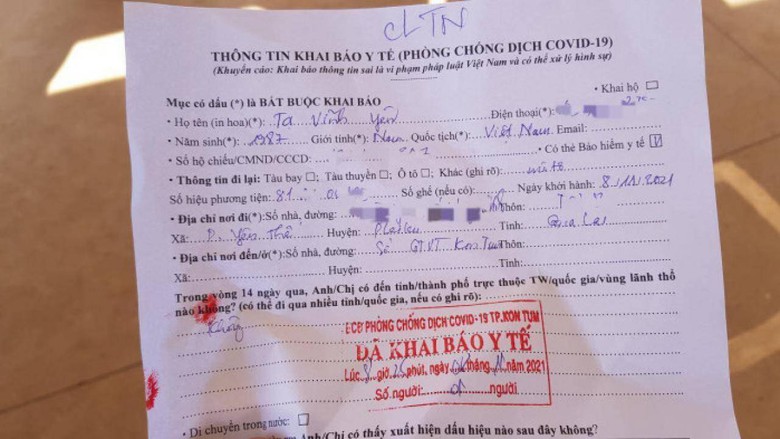 CLTN
THÔNG TIN KHAI BÁO Y TẾ (PHÒNG CHỐNG DỊCH COVID-19)
(Khuyến cáo: Khai báo thông tin sai là vi phạm pháp luật Việt Nam và có thể xử lý hình sự)
Khai hộ
Mục có dấu (*) là BẮT BUỘC KHAI BÁO
• Họ tên (in hoa)(*): Tạ Vĩnh Yên Điện thoại(*):
• Năm sinh(*): 1987 Giới tính(*): Nam Quốc tịch(*): Việt Nam Email:
• Số hộ chiếu/CMND/CCCD: • Có thẻ Bảo hiểm y tế
• Thông tin đi lại: Tàu bay ; Tàu thuyền ; Ô tô ; Khác (ghi rõ): mô tô
Số hiệu phương tiện: 81 Số ghế (nếu có): Ngày khởi hành: 8/11/2021
• Địa chỉ nơi đi(*): Số nhà, đường: Thôn:
Xã: P. Yên Thế Huyện: Pleiku Tỉnh: Gia Lai
• Địa chỉ nơi đến/ở(*): Số nhà, đường: Sở GTVT Kon Tum Thôn:
Xã: Huyện: Tỉnh:
Trong vòng 14 ngày qua, Anh/Chị có đến tỉnh/thành phố trực thuộc TW/quốc gia/vùng lãnh thổ
nào không? (có thể đi qua nhiều tỉnh/quốc gia, nếu có ghi rõ):
Không
BCĐ PHÒNG CHỐNG DỊCH COVID-19 TP.KON TUM
ĐÃ KHAI BÁO Y TẾ
Lúc 8 giờ 25 phút, ngày tháng 11 năm 2021
Số người: 01 người
• Di chuyển trong nước:
Anh/Chị có thấy xuất hiện dấu hiệu nào sau đây không?